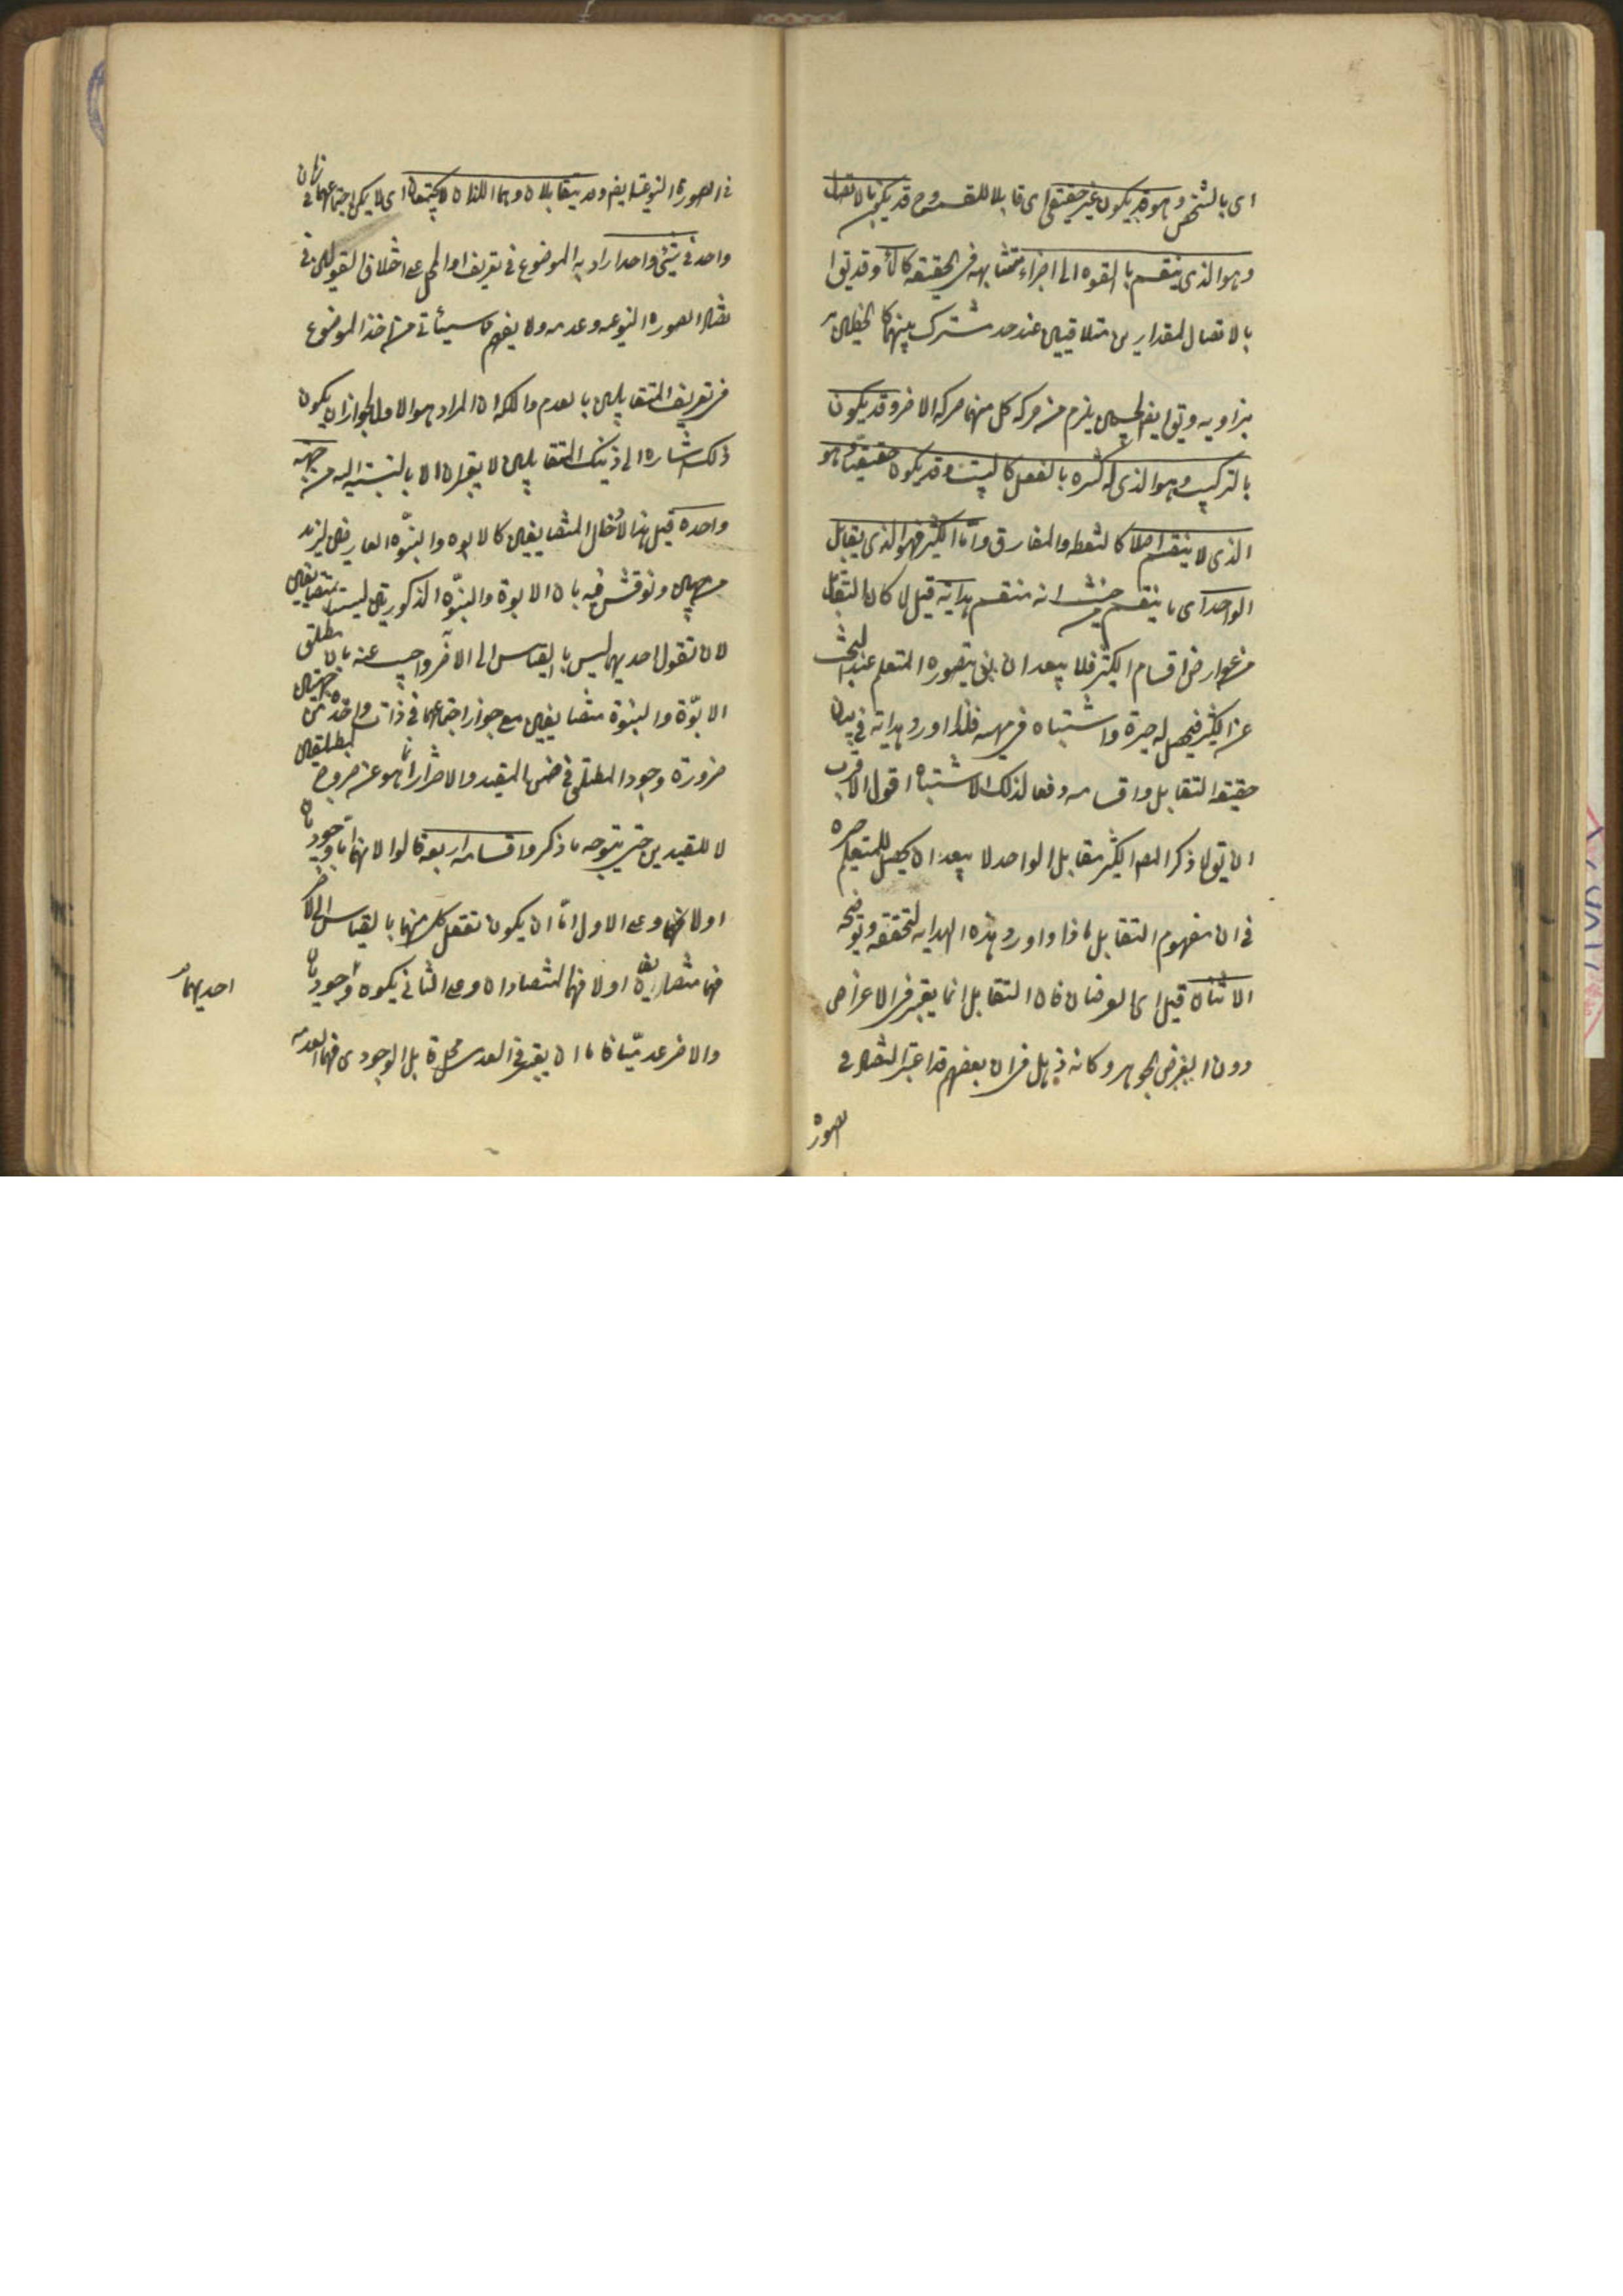 ای بالشخص وهو قد يكون غير حقيقی ای قابلا للقسمة وح قد يكون بالاتصال
وهو الذی ينقسم بالقوه الی اجزاء متشابهه فی الحقيقه كالمأ وقد يقوا
بالاتصال لمقدارين متلاقيين عند حد مشترك بينهما كالخطين
بزاويه ويقو ايضا لجسمين يلزم من حركه كل منهما حركه الاخر وقد يكون
بالتركيب وهو الذی له كثره بالفعل كالبيت وقد يكون حقيقيا وهو
الذی لا ينقسم اصلا كالنقطه والمفارق واما الكثير فهو الذی يقابل
الواحد ای ما ينقسم من حيث انه منقسم هداية قيل لما كان التقابل
من عوارض اقسام الكثير فلا يبعد ان يتصوره المتعلم عند البحث
عن الكثير فيحصل له حيرة واشتباه فی فلذا اورد هداية فی بيان
حقيقه التقابل واقسامه دفعا لذلك الاشتباه اقول الاقرب
ان يقو لما ذكر المص الكثير مقابل الواحد لا يبعد ان يحصل للمتعلم حيره
فی ان مفهوم التقابل ماذا واورد هذه الهدايه لتحققه وتوضيحه
الاثنان قيل ای العرضان فان التقابل انما يعتبر فی الاعراض
دون الجوهر وكانه ذهل فی ان بعضهم قد اعتبر التضاد فی
الصورة
فی الصورة النوعية ايضا وقد يتقابلان وهما اللذان لا يجتمعان ای لا يمكن اجتماعهما فی زمان
واحد فی شیٔ واحد اراد به الموضوع فی تعريف او المحل علی اختلاف القولين فی
تضاد الصوره النوعيه وعدمه ولا يفهم ما سيأتی من اخذ الموضوع
فی تعريف المتقابلين بالعدم والملكه ان المراد هو الاول لجواز ان يكون
ذلك اشاره الی ذينك المتقابلين لا يعتبران الا بالنسبة اليه من جهه
واحده قيل هذا لادخال المتضايفين كالابوه والبنوّه العارضين لزيد
من جهتين ونوقش فيه بان الابوة والبنوّه المذكورتين ليستا بمتضايفين
لان تعقل احديهما ليس بالقياس الی الاخر واجيب عنه بان مطلق
الابوّة والبنوّة متضايفين مع جواز اجتماعهما فی ذات واحده من جهتين
ضرورة وجود المطلق فی ضمن المقيد والاحتراز انما هو عن خروج المطلقين
لا المقيدين حتی يتوجه ما ذكر واقسامه اربعه قالوا لانهما اما وجوديان
اولا فهما وعلی الاول اما ان يكون تعقل كل منهما بالقياس الی الاخر
فهما متضايفان اولا فهما المتضادان وعلی الثانی يكون وجوديا
احديهما
والاخر عدميّا فاما ان يعتبر فی العدمی محل قابل الوجودی فهما العدم